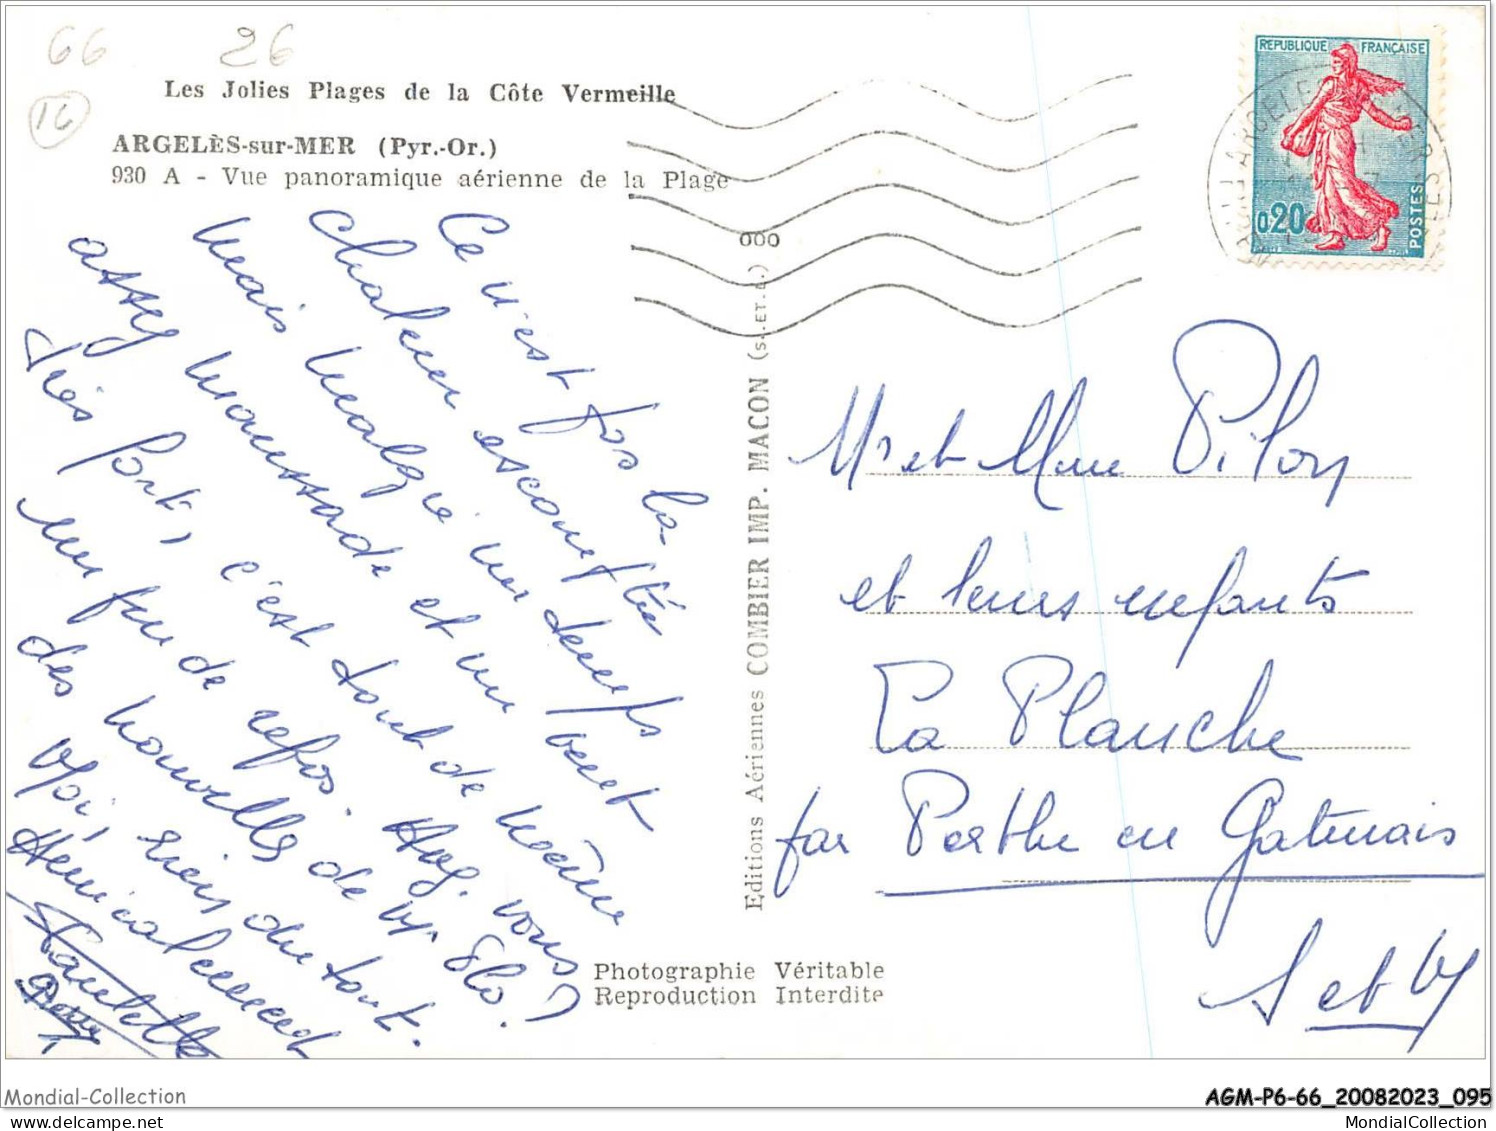 66
26
16
Les Jolies Plages de la Côte Vermeille
ARGELÈS-sur-MER (Pyr.-Or.)
930 A - Vue panoramique aérienne de la Plage
Ce n'est pas la
chaleur escomptée
mais malgré un temps
assez maussade et un vent
très fort, c'est tout de même
un peu de repos. Avez-vous
des nouvelles de
Moi, rien du tout.
Amicalement
Paulette
REPUBLIQUE FRANÇAISE
0,20
POSTES
000
Editions Aériennes COMBIER IMP. MACON (S.-ET-L.)
Mr et Mme Pilon
et leurs enfants
La Planche
par Perthe en Gatinais
S et M
Photographie Véritable
Reproduction Interdite
Mondial-Collection
AGM-P6-66_20082023_095
delcampe.net
MondialCollection